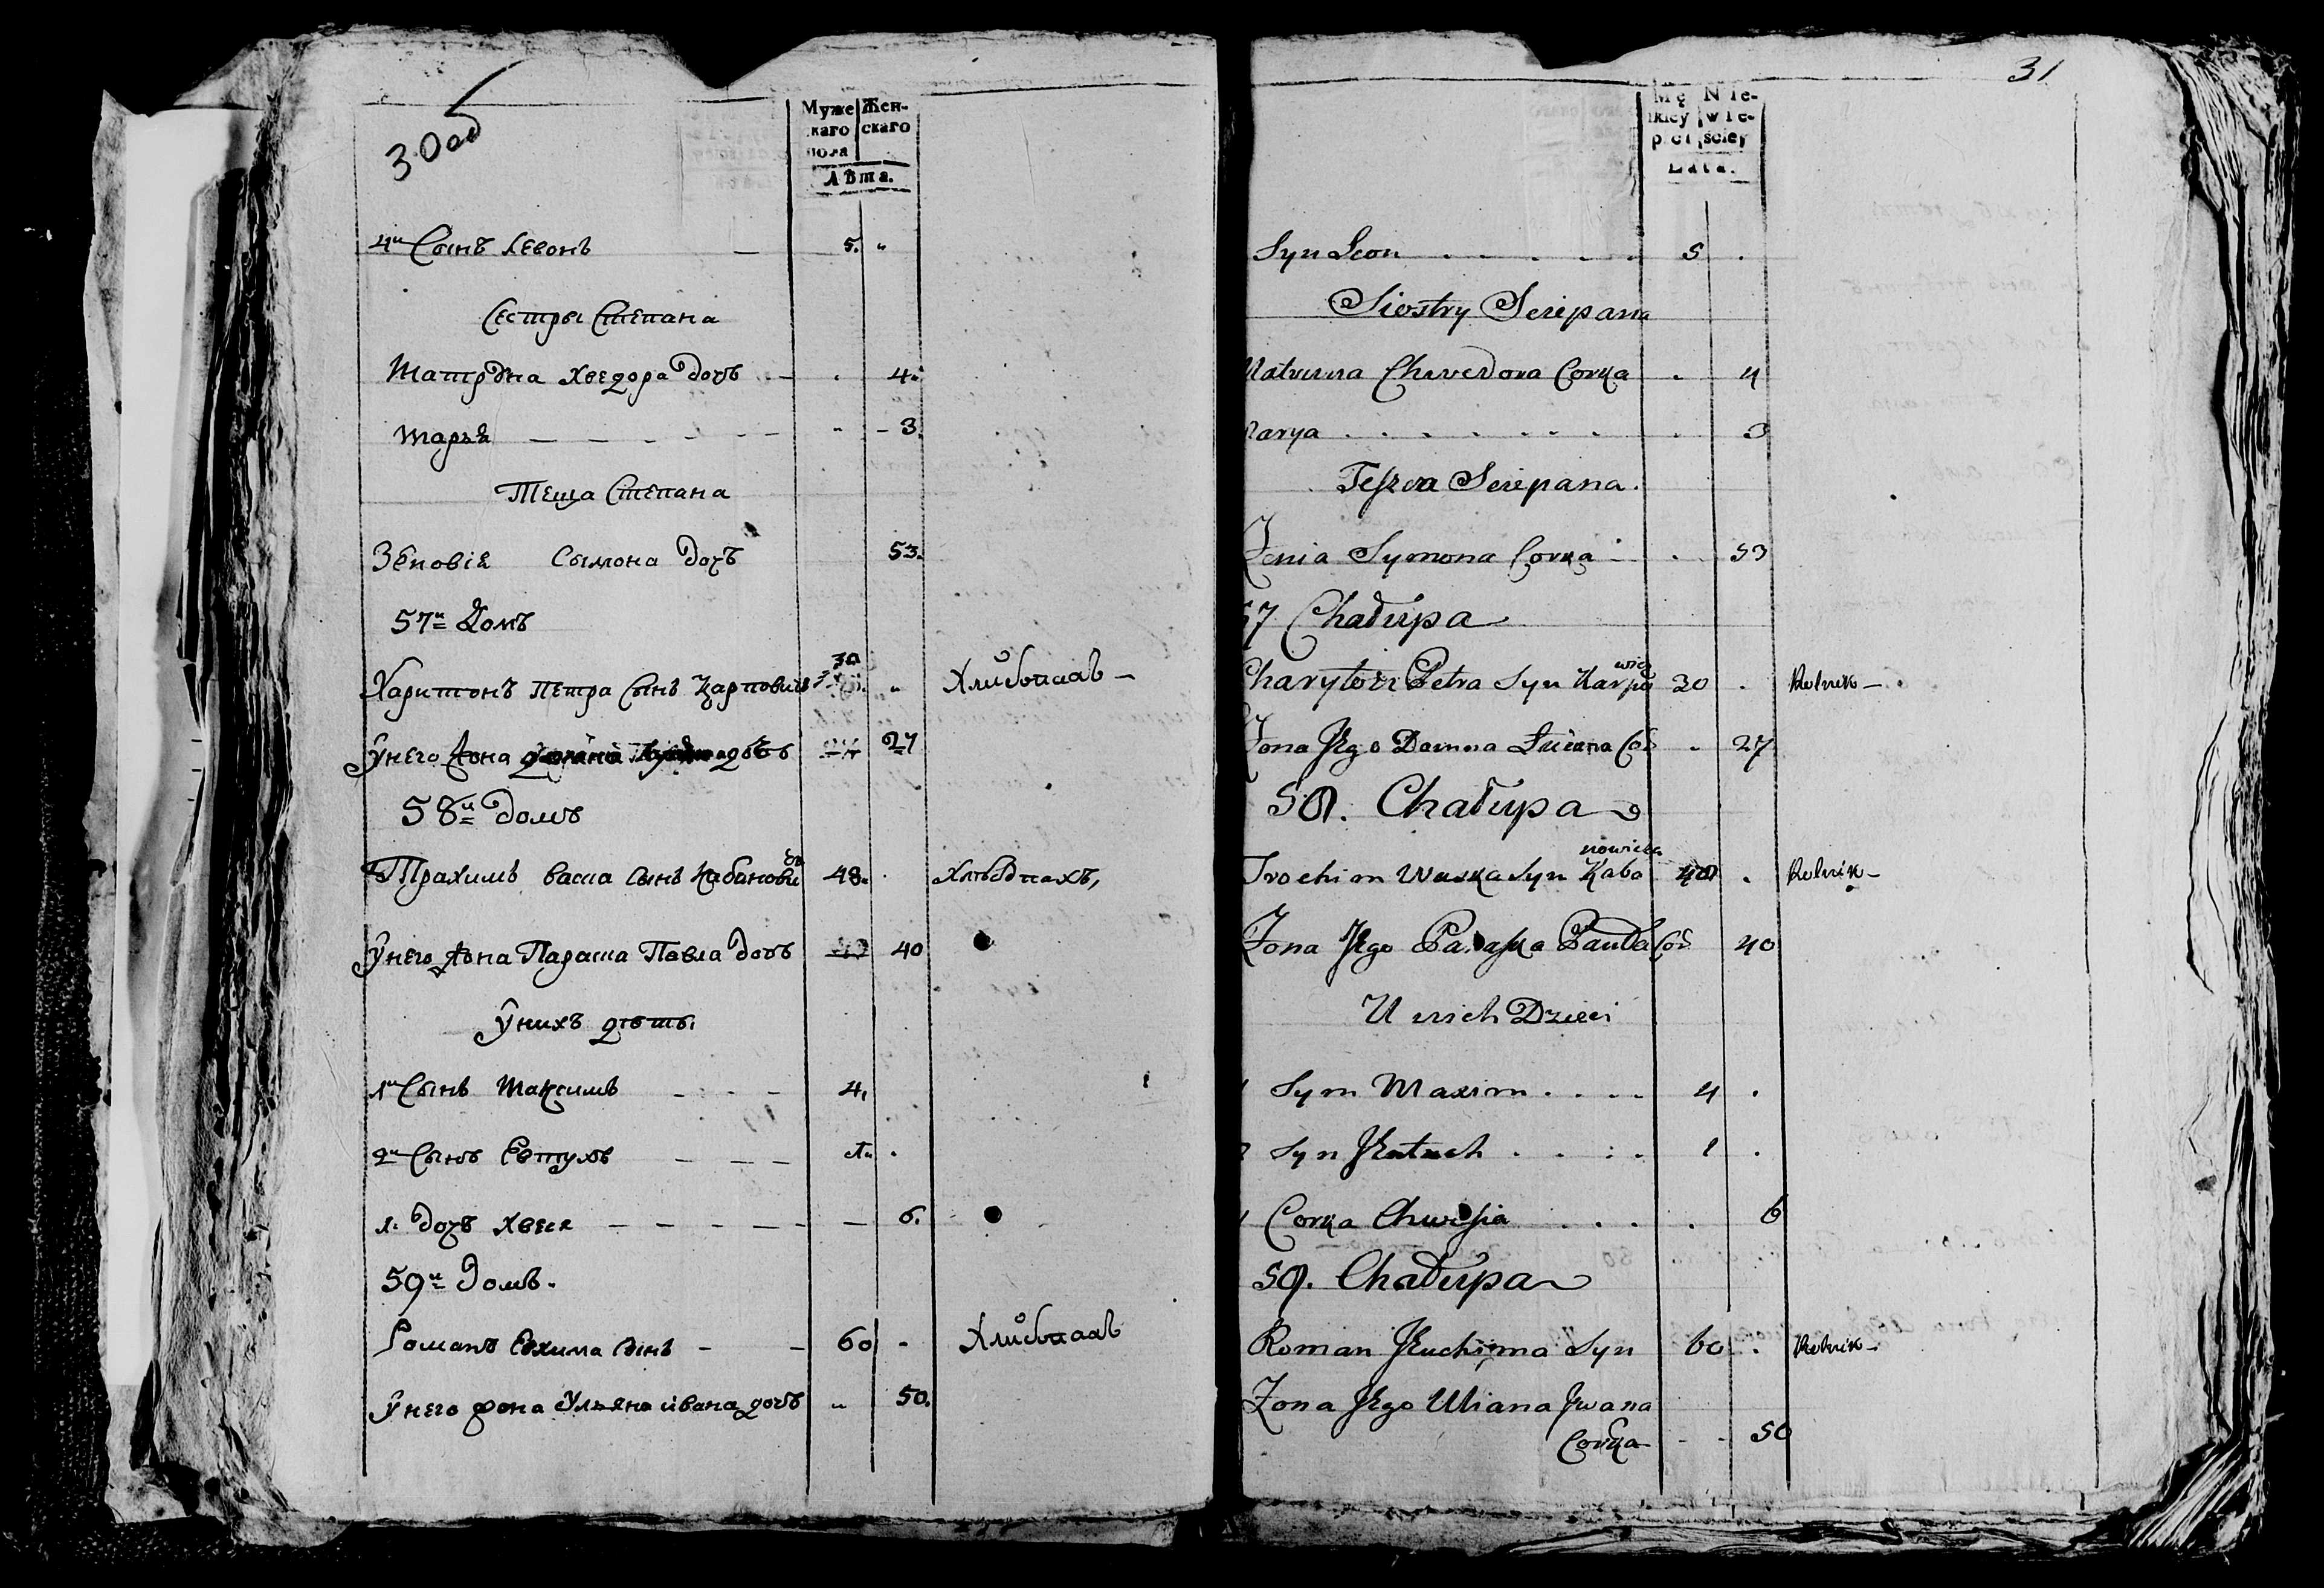 30 об
Муже Жен-
каго скаго
пола
Лѣта.
4й Сынъ Левонъ — 5. "
Сестры Степана
Матрона Хведора дочь — . 4.
Марья — — — — — — " 3.
Теща Степана
Зѣновія Сымона дочь 53.
57й Домъ
Харитонъ Петра Сынъ Карповичь 30 " Хлибопаав —
Унего жона дочь 27
58й домъ
Трахимъ васка сынъ Кабановичь 48. . Хлѣбпахъ,
Унего жона Параша Павла дочь 40
Унихъ дѣты
1й Сынъ Максимъ - - - 4.
2й Сынъ Евтухъ — — — 1. .
1. дочь Хвеся — — — — — — 6.
59й домъ.
Романъ Евхима сынъ - - 60 - Хлибопаав
Унего жона Ульяна ивана дочь " 50.
31
Mę Nie-
skiey wie-
płci sciey
Lata.
Syn Leon . . . . . . 5 .
Siostry Sciepana
Matruna Chwedora Corka . 4
Marya . . . . . . . . . 3
Teszcza Sciepana.
Zenia Symona Corka . 53
57 Chałupa
Charyton Petra Syn Karpowicz 30 . Rolnik —
Zona Jego Domna Cor . 27
58. Chałupa
Trochim Waska Syn Kabanowicz 48 . Rolnik —
Zona Jego Paraska Pauła Cor 40
U nich Dzieci
1 Syn Maxim . . . . 4 .
2 Syn Jeutuch . . . . 1 .
1 Corka Chwesia . . . . 6
59. Chałupa
Roman Jeuchima Syn 60 . Rolnik —
Zona Jego Uliana Jwana
Corka - - 50